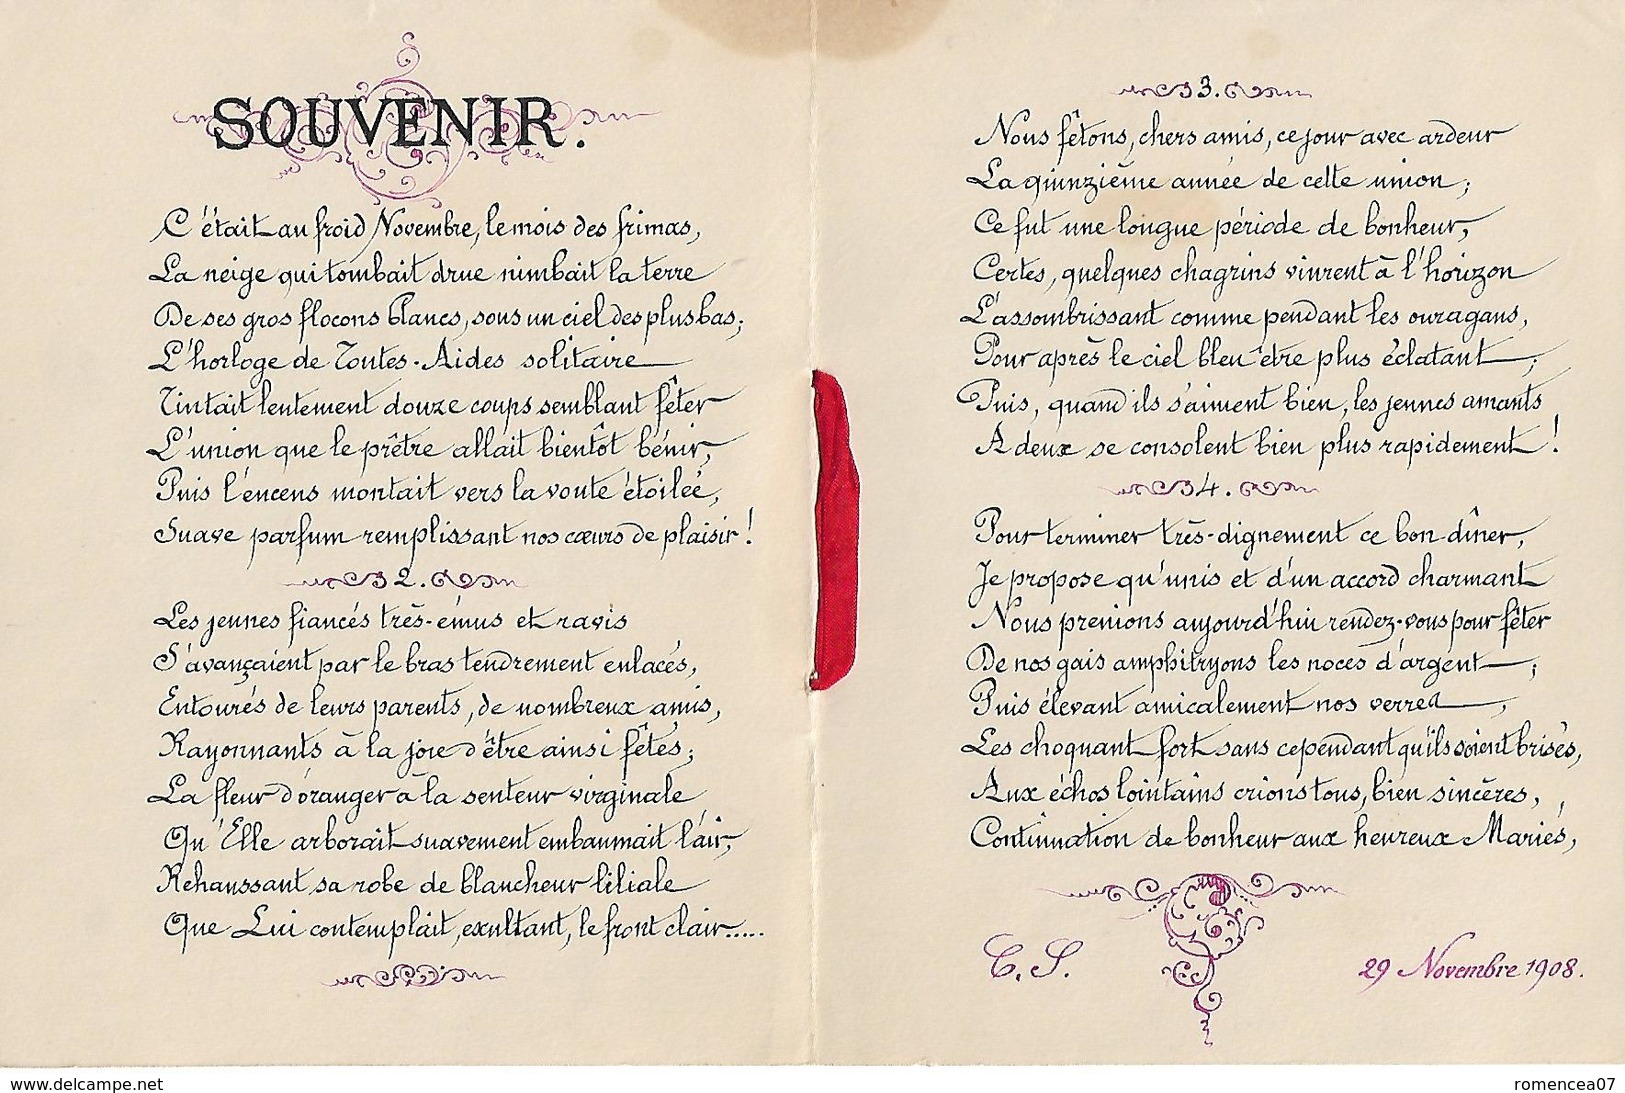 SOUVENIR.
C'était au froid Novembre, le mois des frimas,
La neige qui tombait drue nimbait la terre
De ses gros flocons blancs, sous un ciel des plus bas;
L'horloge de Toutes-Aides solitaire
Tintait lentement douze coups semblant fêter
L'union que le prêtre allait bientôt bénir,
Puis l'encens montait vers la voute étoilée,
Suave parfum remplissant nos cœurs de plaisir!
2.
Les jeunes fiancés très-émus et ravis
S'avançaient par le bras tendrement enlacés,
Entourés de leurs parents, de nombreux amis,
Rayonnants à la joie d'être ainsi fêtés;
La fleur d'oranger à la senteur virginale
Qu'Elle arborait suavement embaumait l'air,
Rehaussant sa robe de blancheur liliale
Que Lui contemplait, exultant, le front clair.....
3.
Nous fêtons, chers amis, ce jour avec ardeur
La quinzième année de cette union;
Ce fut une longue période de bonheur,
Certes, quelques chagrins vinrent à l'horizon
L'assombrissant comme pendant les ouragans,
Pour après le ciel bleu être plus éclatant;
Puis, quand ils s'aiment bien, les jeunes amants
A deux se consolent bien plus rapidement!
4.
Pour terminer très-dignement ce bon dîner,
Je propose qu'unis et d'un accord charmant
Nous prenions aujourd'hui rendez-vous pour fêter
De nos gais amphitryons les noces d'argent;
Puis élevant amicalement nos verres,
Les choquant fort sans cependant qu'ils soient brisés,
Aux échos lointains crions tous, bien sincères,
Continuation de bonheur aux heureux Mariés,
C. S. 29 Novembre 1908.
www.delcampe.net romencea07